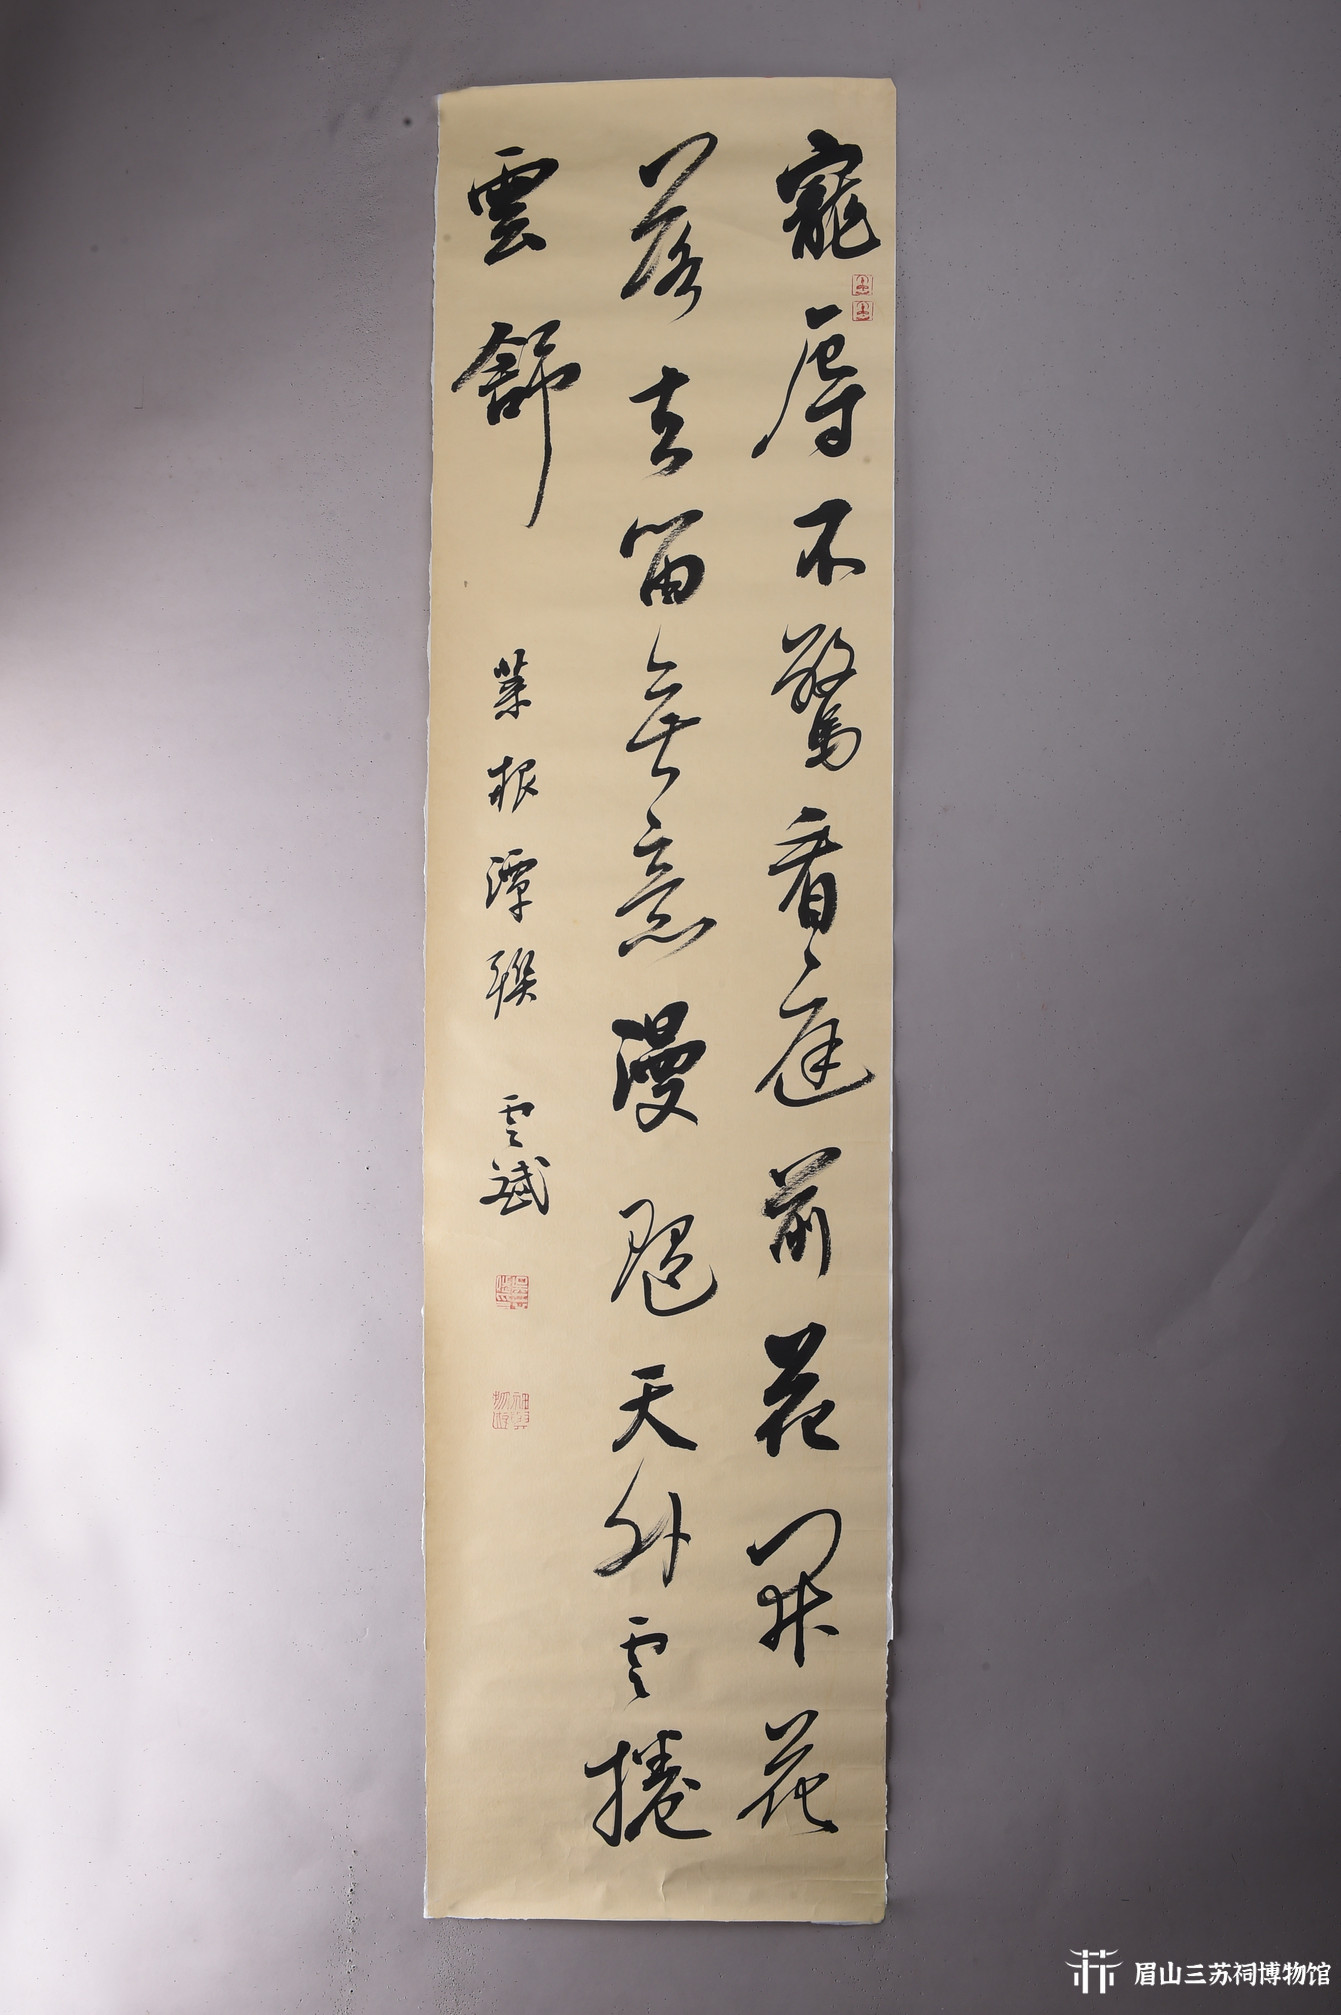 寵辱不驚看庭前花開花
落去留無意漫隨天外雲捲
雲舒
菜根譚聯
雲斌
眉山三苏祠博物馆